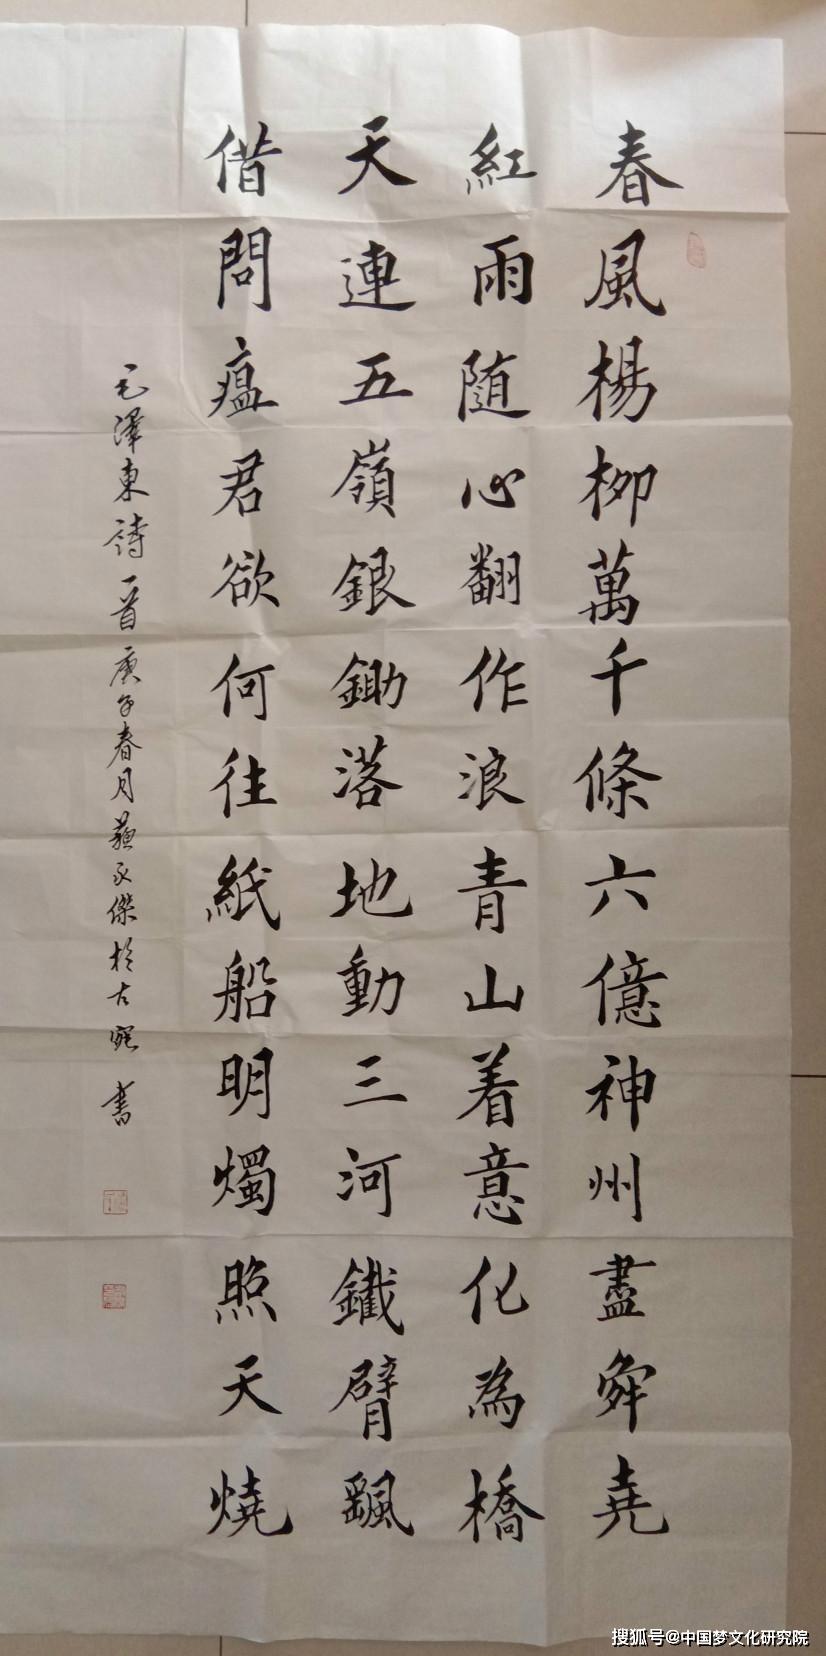 春風楊柳萬千條六億神州盡舜堯
紅雨随心翻作浪青山着意化為橋
天連五嶺銀鋤落地動三河鐵臂颻
借問瘟君欲何往紙船明燭照天燒
毛澤東詩一首庚子春月蘇永傑於古宛書
搜狐号@中国梦文化研究院